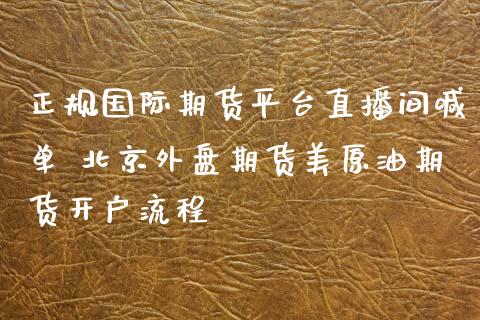 正规国际期货平台直播间喊
单 北京外盘期货美原油期
货开户流程